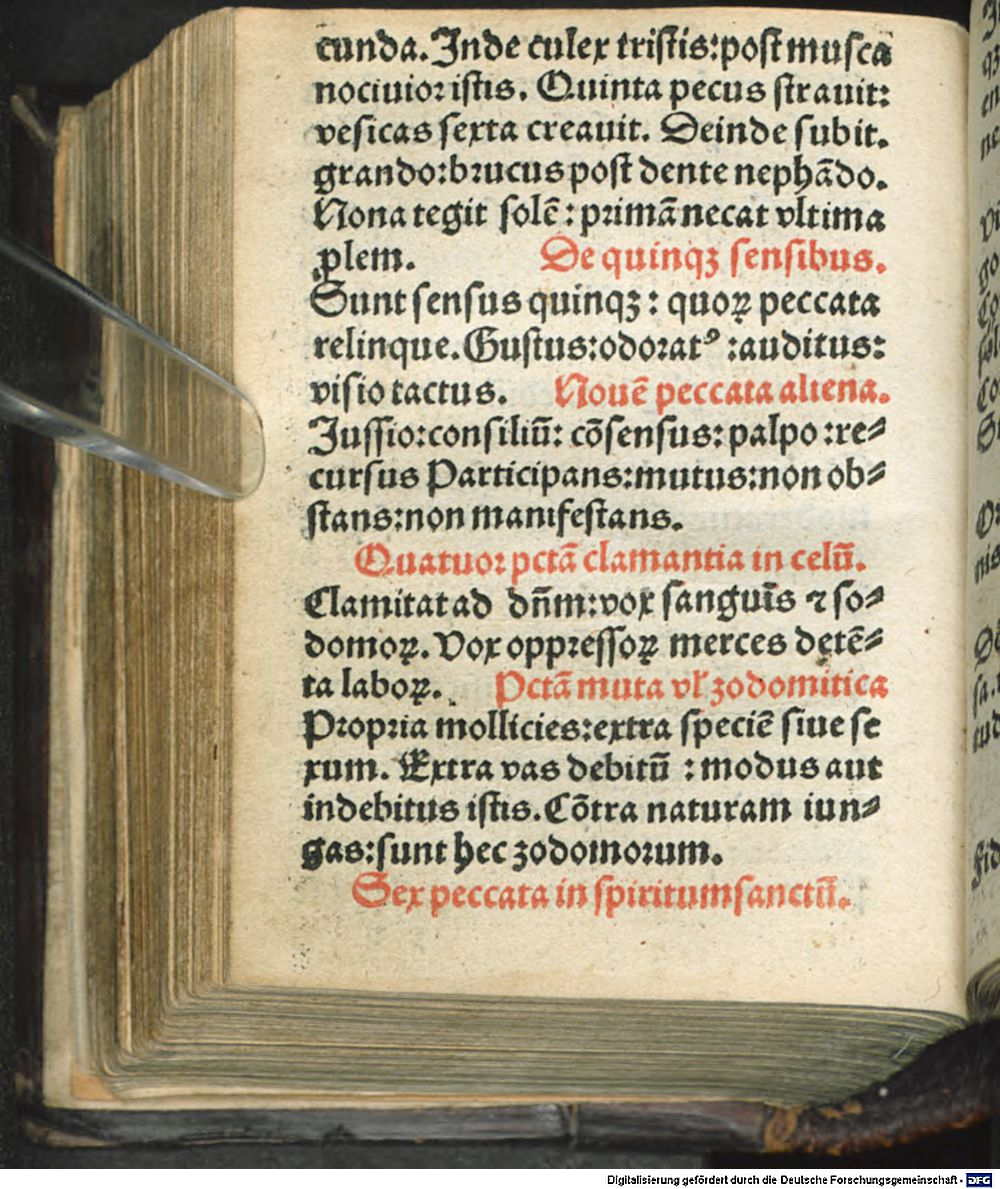 cunda. Inde culex tristis: post musca
nociuior istis. Quinta pecus strauit:
vesicas sexta creauit. Deinde subit.
grando: brucus post dente nephādo.
Nona tegit solē: primā necat vltima
ꝓlem. De quinqꝫ sensibus.
Sunt sensus quinqꝫ: quoꝝ peccata
relinque. Gustus: odoratꝰ: auditus:
visio tactus. Nouē peccata aliena.
Jussio: consiliū: cōsensus: palpo: re⸗
cursus Participans: mutus: non ob⸗
stans: non manifestans.
Quatuor pctā clamantia in celū.
Clamitat ad dn̄m: vox sanguīs ⁊ so⸗
domoꝝ. Vox oppressoꝝ merces detē⸗
ta laboꝝ. Pctā muta vl̓ zodomitica
Propria mollicies: extra speciē siue se
xum. Extra vas debitū: modus aut
indebitus istis. Cōtra naturam iun⸗
gas: sunt hec zodomorum.
Sex peccata in spiritumsanctū.
Digitalisierung gefördert durch die Deutsche Forschungsgemeinschaft - DFG